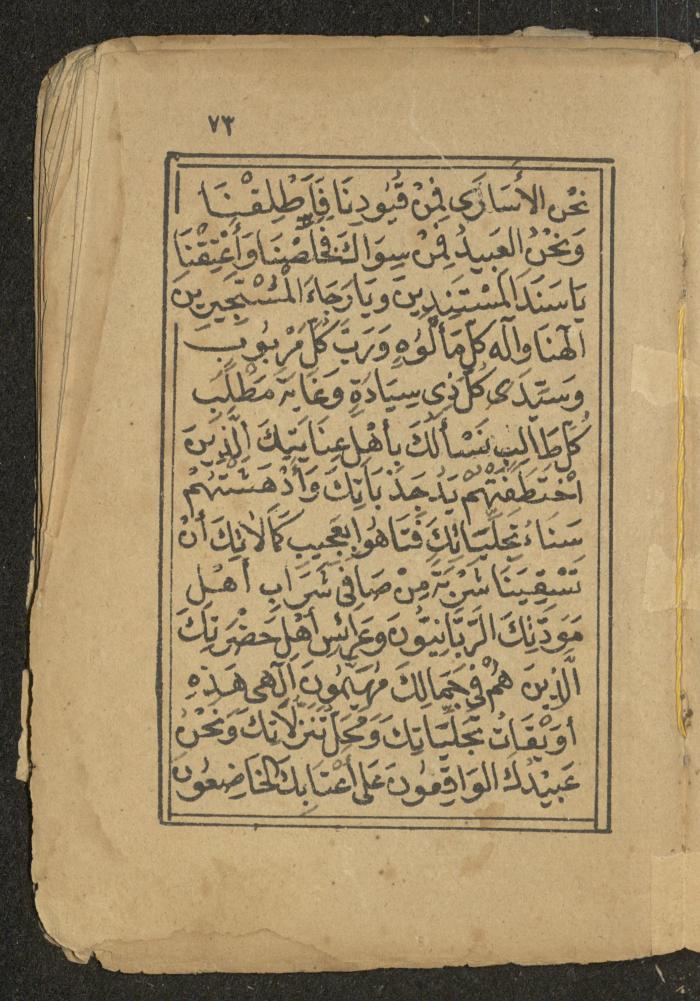 ٧٣
نَحْنِ الأُسَارَى فَمِنْ قُيُودِنَا فَأَطْلِقْنَا
وَنَحْنُ العَبِيدُ فَمِنْ سِوَاكَ فَخَلِّصْنَا وَأَعْتِقْنَا
يَا سَنَدَ الْمُسْتَنِدِينَ وَيَا رَجَاءَ الْمُسْتَجِيرِينَ
الٰهَنَا وَالٰهَ كُلِّ مَأْلُوهٍ وَرَبَّ كُلِّ مَرْبُوبٍ
وَسَيِّدَ كُلِّ ذِي سِيَادَةٍ وَغَايَةَ مَطْلَبِ
كُلِّ طَالِبٍ نَسْأَلُكَ بِأَهْلِ عِنَايَتِكَ الَّذِينَ
اخْتَطَفَتْهُمْ يَدُ جَذَبَاتِكَ وَأَدْهَشَتْهُمْ
سَنَاءُ تَجَلِّيَاتِكَ فَتَاهُوا بِعَجِيبِ كَمَالَاتِكَ أَنْ
تَسْقِيَنَا شَرْبَةً مِنْ صَافِي شَرَابِ أَهْلِ
مَوَدَّتِكَ الرَّبَّانِيُّونَ وَعَرَائِسِ أَهْلِ حَضْرَتِكَ
الَّذِينَ هُمْ فِي جَمَالِكَ مُهَيَّمُونَ الٰهِي هَذِهِ
أُوَيْقَاتُ تَجَلِّيَاتِكَ وَمَحَلُّ تَنَزُّلَاتِكَ وَنَحْنُ
عَبِيْدُكَ الوَاقِفُونَ عَلَى أَعْتَابِكَ الخَاضِعُونَ